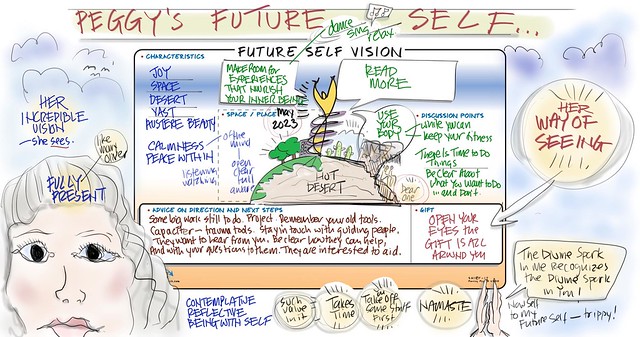 PEGGY'S FUTURE SELF...
dance
sing
relax
FUTURE SELF VISION
• CHARACTERISTICS
JOY
SPACE
DESERT
VAST
AUSTERE BEAUTY
CALMNESS
PEACE WITHIN
MAKE ROOM for
EXPERIENCES
THAT NOURISH
YOUR INNER BEING
READ
MORE
• SPACE / PLACE
MAY
2023
of the
mind
listening,
watching,
open
clear
full
aware
HOT
DESERT
USE
YOUR
BODY
• DISCUSSION POINTS
while you can
keep your fitness
There Is Time to Do
Things
Be Clear About
What You Want to Do
... and Don't.
Dear
one
• ADVICE ON DIRECTION AND NEXT STEPS
Some big work still to do. Project. Remember your old tools.
Capacitar — trauma tools. Stay in touch with guiding people.
They want to hear from you. Be clear how they can help,
And with your ?'s from to them. They are interested to aid.
• GIFT
OPEN YOUR
EYES the
GIFT IS ALL
AROUND YOU
HER
INCREDIBLE
VISION
— she sees.
like
many
alive
FULLY
PRESENT
HER
WAY OF
SEEING
CONTEMPLATIVE
REFLECTIVE
BEING WITH SELF
such
value
in it
Takes
Time
Take off
some stuff
First
NAMASTE
The Divine Spark
in Me Recognizes
the Divine Spark
in You!
Now Self
to my
Future Self — trippy!